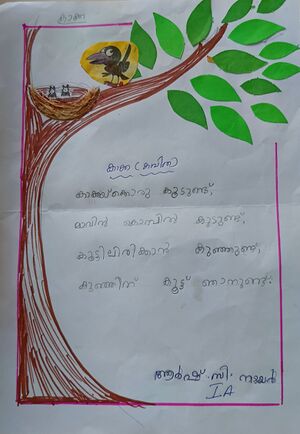 കാക്ക
കാക്ക (കവിത)
കാക്കയ്ക്കൊരു കൂടുണ്ട്,
മാവിൻ കൊമ്പിൽ കൂടുണ്ട്,
കൂട്ടിലിരിക്കാൻ കുഞ്ഞുണ്ട്,
കുഞ്ഞിന് കൂട്ട് ഞാനുണ്ട്.
ആർഷ് .സി. നയൻ
I A